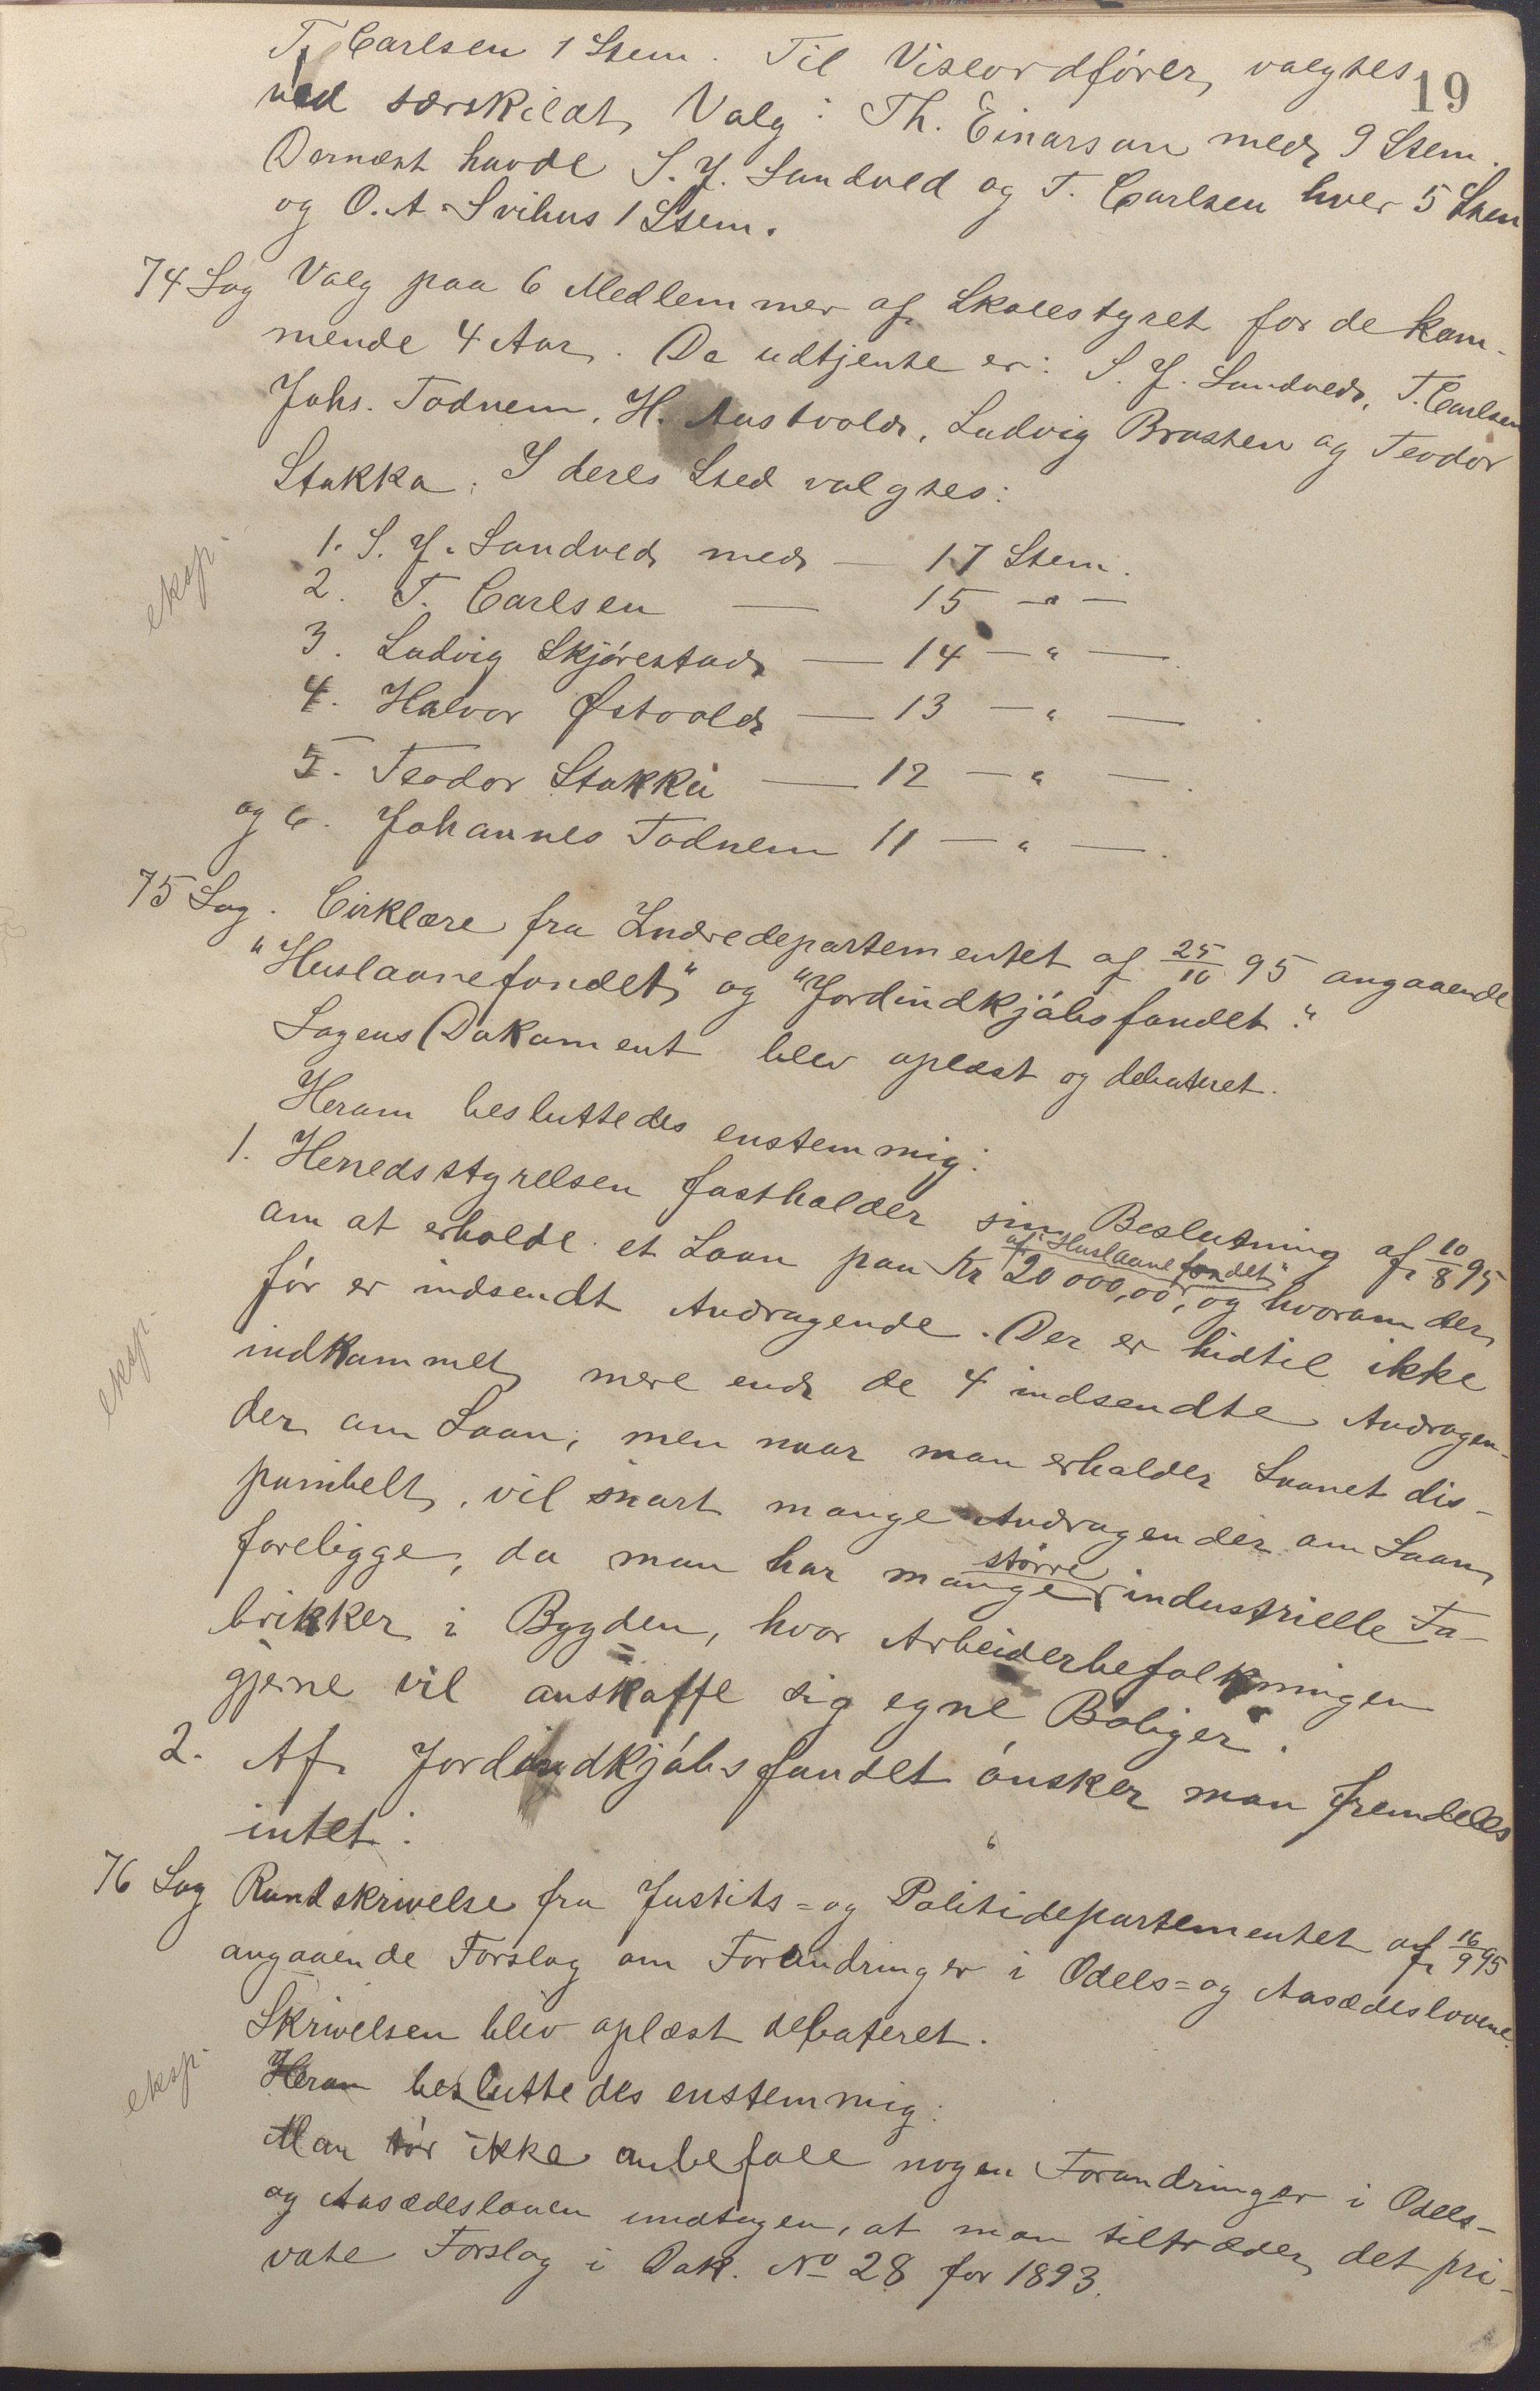 19
T. Carlsen 1 Stem. Til Viseordfører, valgtes
ved særskildt Valg: Th. Einarsen med 9 Stem.
Dernæst havde S. J. Sandved og T. Carlsen hver 5 Stem
og O. A. Svihus 1 Stem.
74 Sag Valg paa 6 Medlemmer af Skolestyret for de kom-
mende 4 Aar. De udtjente er: S. J. Sandved, T. Carlsen
Johs. Todnem, H. Austvold, Ludvig Brasten og Teodor
Stokka. I deres Sted valgtes:
eksp.
1. S. J. Sandved med — 17 Stem.
2. T. Carlsen — 15 — " —
3. Ludvig Skjørestad — 14 — " —.
4. Halvor Østvold — 13 — " —
5. Teodor Stokka — 12 — " —.
og 6. Johannes Todnem 11 — " —.
75 Sag. Cirklære fra Indredepartementet af 25/10 95 angaaende
"Huslaanefondet" og "Jordindkjøbsfondet."
Sagens Dokument blev oplæst og debateret.
Herom besluttedes enstemmig:
1. Herredsstyrelsen fastholder sin Beslutning af 10/8 95
om at erholde et Laan paa Kr 20 000,00, af "Huslaanefondet" og hvorom der
før er indsendt Andragende. Der er hidtil ikke
eksp.
indkommet mere end de 4 indsendte Andragen-
der om Laan; men naar man erholder Laanet dis-
ponibelt, vil snart mange Andragender om Laan
foreligge, da man har mange større industrielle Fa-
brikker i Bygden, hvor Arbeiderbefolkningen
gjerne vil anskaffe sig egne Boliger.
2. Af Jordindkjøbsfondet ønsker man fremdeles
intet.
76 Sag Rundskrivelse fra Justits- og Politidepartementet af 16/9 95
angaaende Forslag om Forandringer i Odels- og Aasædeslovene.
Skrivelsen blev oplæst debateret.
eksp.
Herom besluttedes enstemmig:
Man tør ikke anbefale nogen Forandringer i Odels-
og Aasædesloven undtagen, at man tiltræder det pri-
vate Forslag i Dok. No 28 for 1893.